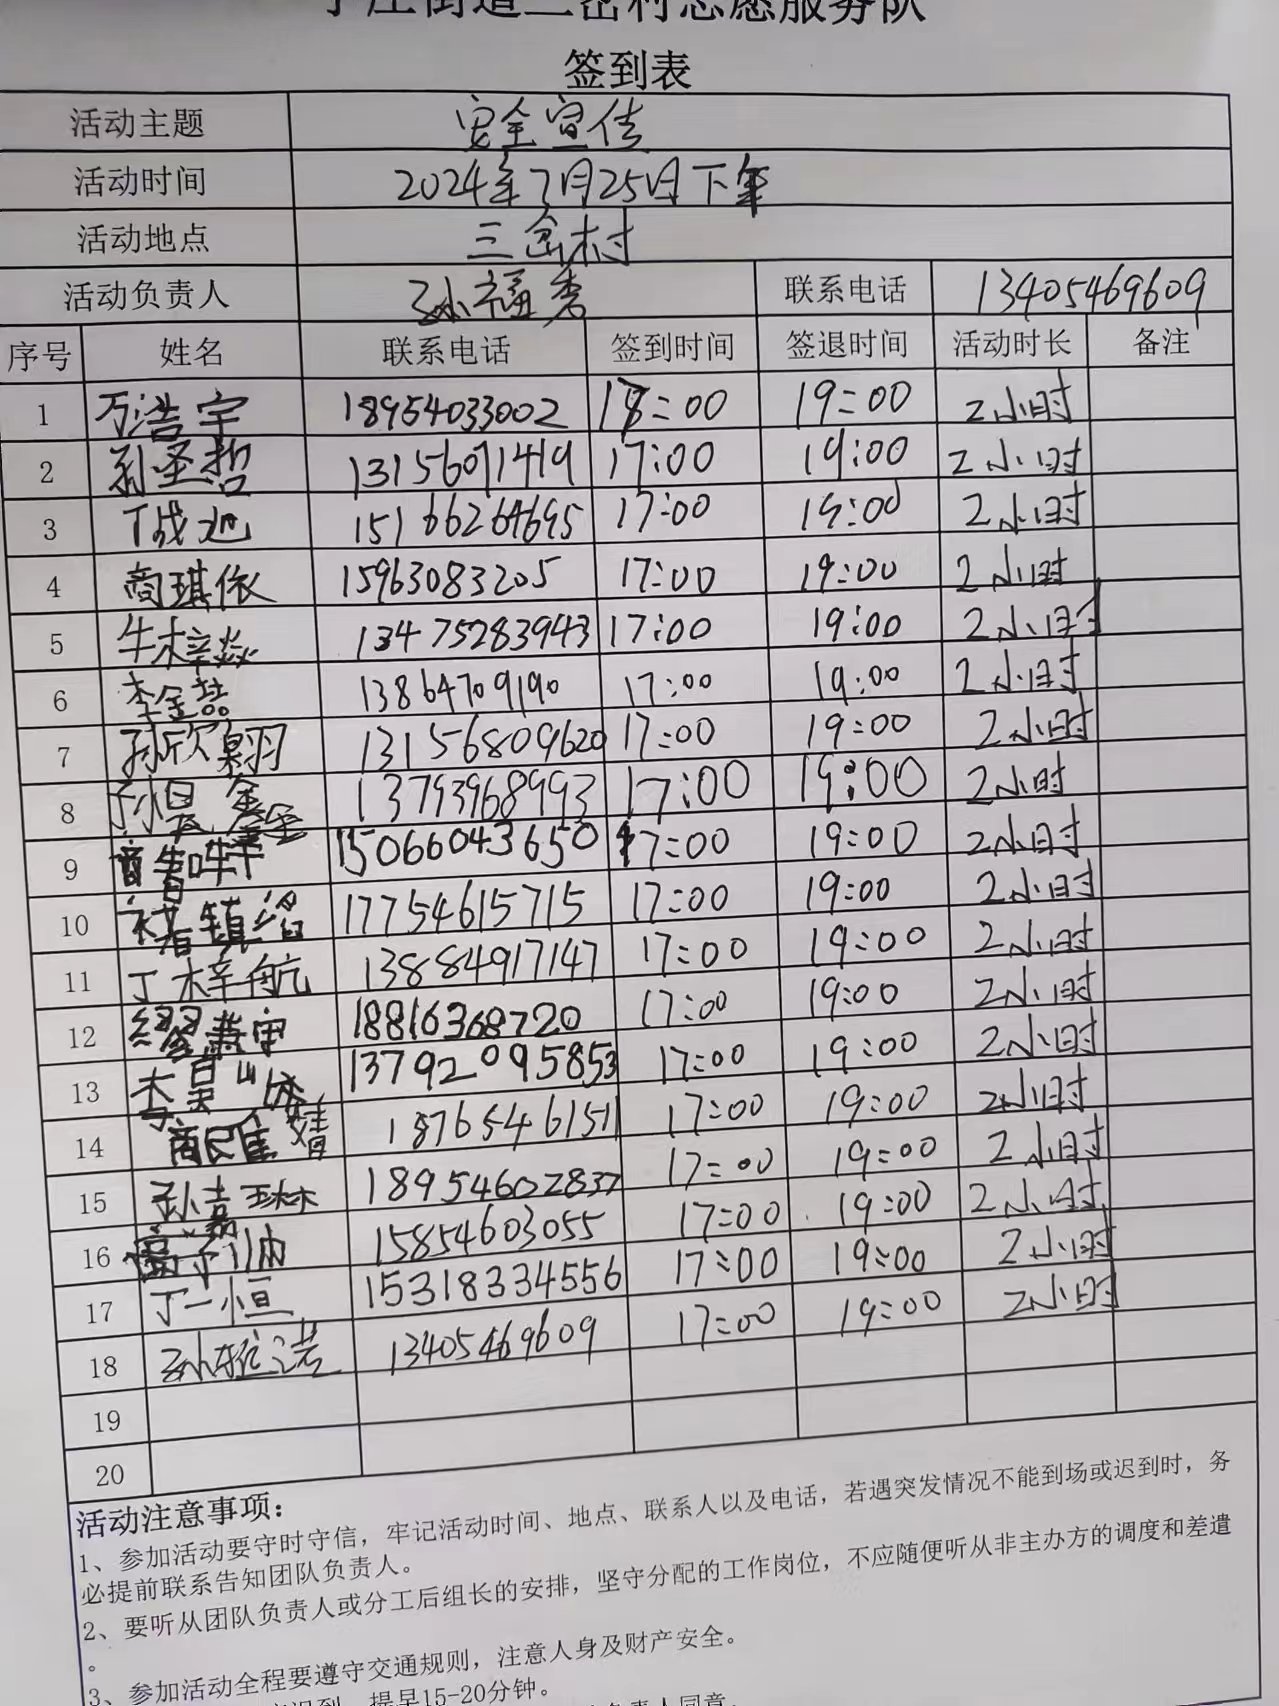 街道三岔村志愿服务队
签到表
活动主题 安全宣传
活动时间 2024年7月25日下午
活动地点 三岔村
活动负责人 孙福秀 联系电话 13405469609
序号 姓名 联系电话 签到时间 签退时间 活动时长 备注
1 万浩宇 18954033002 17:00 19:00 2小时
2 孙圣哲 13156071419 17:00 19:00 2小时
3 丁成迪 15166264695 17:00 19:00 2小时
4 商琪依 15963083205 17:00 19:00 2小时
5 牛梓焱 13475283943 17:00 19:00 2小时
6 李金喆 13864709190 17:00 19:00 2小时
7 孙欣翱 13156809620 17:00 19:00 2小时
8 孙昊 13793968993 17:00 19:00 2小时
9 15066043650 17:00 19:00 2小时
10 褚镇滔 17754615715 17:00 19:00 2小时
11 丁梓航 13884917147 17:00 19:00 2小时
12 18816368720 17:00 19:00 2小时
13 李昊 13792095853 17:00 19:00 2小时
14 商民隹婧 18765461511 17:00 19:00 2小时
15 孙嘉琳 18954602837 17:00 19:00 2小时
16 15854603055 17:00 19:00 2小时
17 丁一恒 15318334556 17:00 19:00 2小时
18 孙雅诺 13405469609 17:00 19:00 2小时
19
20
活动注意事项：
1、参加活动要守时守信，牢记活动时间、地点、联系人以及电话，若遇突发情况不能到场或迟到时，务
必提前联系告知团队负责人。
2、要听从团队负责人或分工后组长的安排，坚守分配的工作岗位，不应随便听从非主办方的调度和差遣
。
3、参加活动全程要遵守交通规则，注意人身及财产安全。
迟到，提早15-20分钟。
负责人同意。